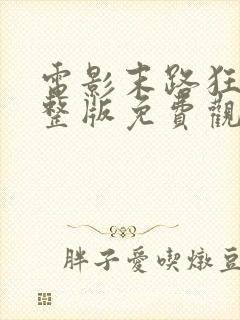 電影末路狂
整版免費觀
胖子愛喫燉豆